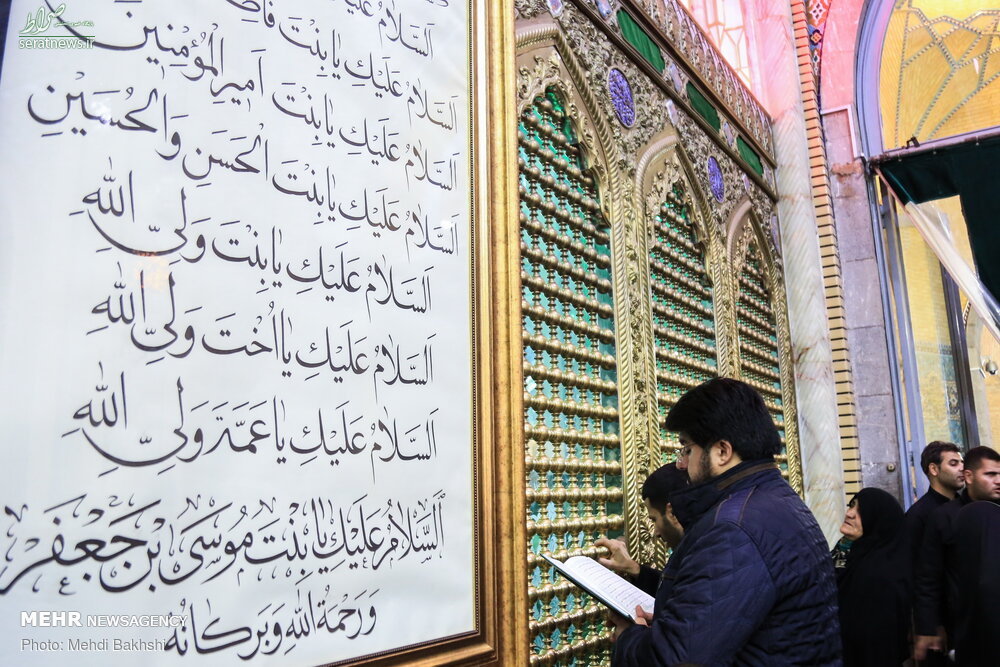 صراط
seratnews.ir
اَلسَّلامُ عَلَيكِ يا بِنْتَ
اَلسَّلامُ عَلَيكِ يا بِنْتَ اَميرِ الْمُؤْمِنينَ
اَلسَّلامُ عَلَيكِ يا بِنْتَ الْحَسَنِ وَالْحُسَيْنِ
اَلسَّلامُ عَلَيكِ يا بِنْتَ وَلِيِّ اللهِ
اَلسَّلامُ عَلَيكِ يا اُخْتَ وَلِيِّ اللهِ
اَلسَّلامُ عَلَيكِ يا عَمَّةَ وَلِيِّ اللهِ
اَلسَّلامُ عَلَيكِ يا بِنْتَ مُوسَى بْنِ جَعْفَرٍ
وَرَحْمَةُ اللهِ وَبَرَكاتُهُ
MEHR NEWSAGENCY
Photo: Mehdi Bakhshi